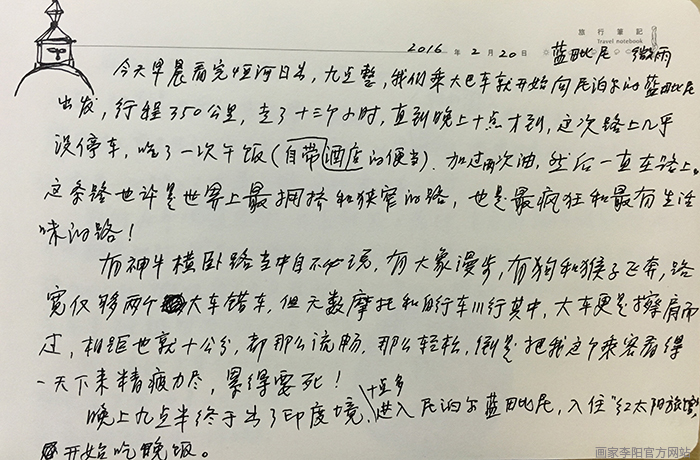 旅 行 筆 記
Travel notebook
2016 年 2 月 20 日 蓝毗尼 微雨
今天早晨看完恒河日出，九点整，我们乘大巴车就开始向尼泊尔的蓝毗尼
出发，行程350公里，走了十三个小时，直到晚上十点才到，这次路上几乎
没停车，吃了一次午饭（自带酒店的便当）.加过两次油，然后一直在路上。
这条路也许是世界上最拥挤和狭窄的路，也是最疯狂和最有生活
味的路！
有神牛横卧路当中自不必说，有大象漫步，有狗和猴子飞奔，路
宽仅够两个大车错车，但无数摩托和自行车川行其中，大车更是擦肩而
过，相距也就十公分，都那么流畅，那么轻松，倒是把我这个乘客看得
一天下来精疲力尽，累得要死！
晚上九点半终于出了印度境，十点多进入尼泊尔蓝毗尼，入住“红太阳旅馆”
开始吃晚饭。
画家李阳官方网站